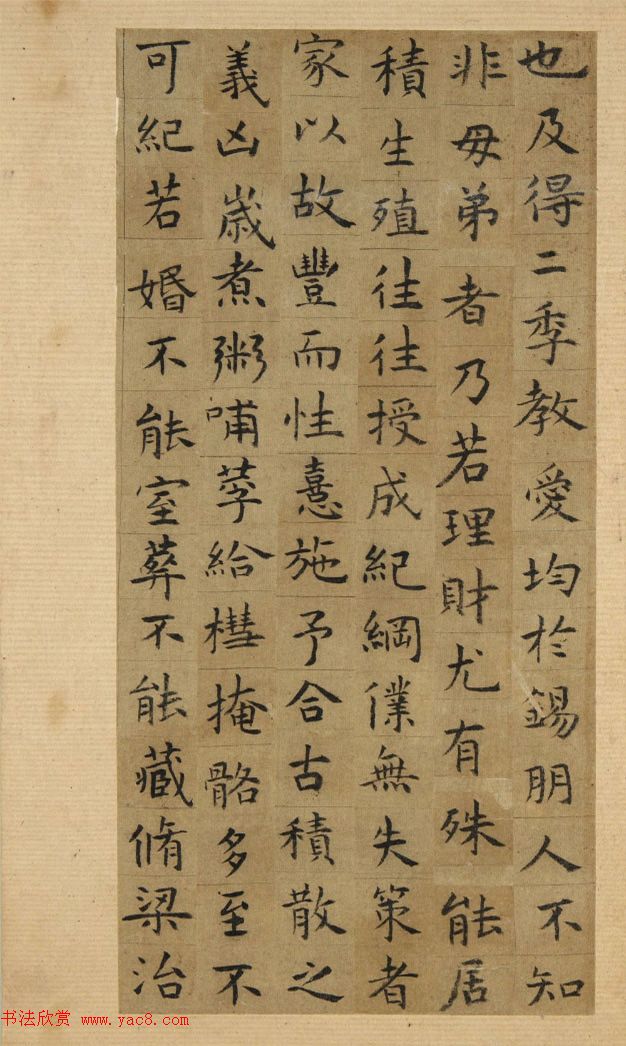 也及得二季教愛均於錫朋人不知
非毋弟者乃若理財尤有殊能居
積生殖往往授成紀綱僕無失策者
家以故豐而性憙施予合古積散之
義凶歲煮粥哺莩給槥掩骼多至不
可紀若婚不能室葬不能藏脩梁治
书法欣赏 www.yac8.com